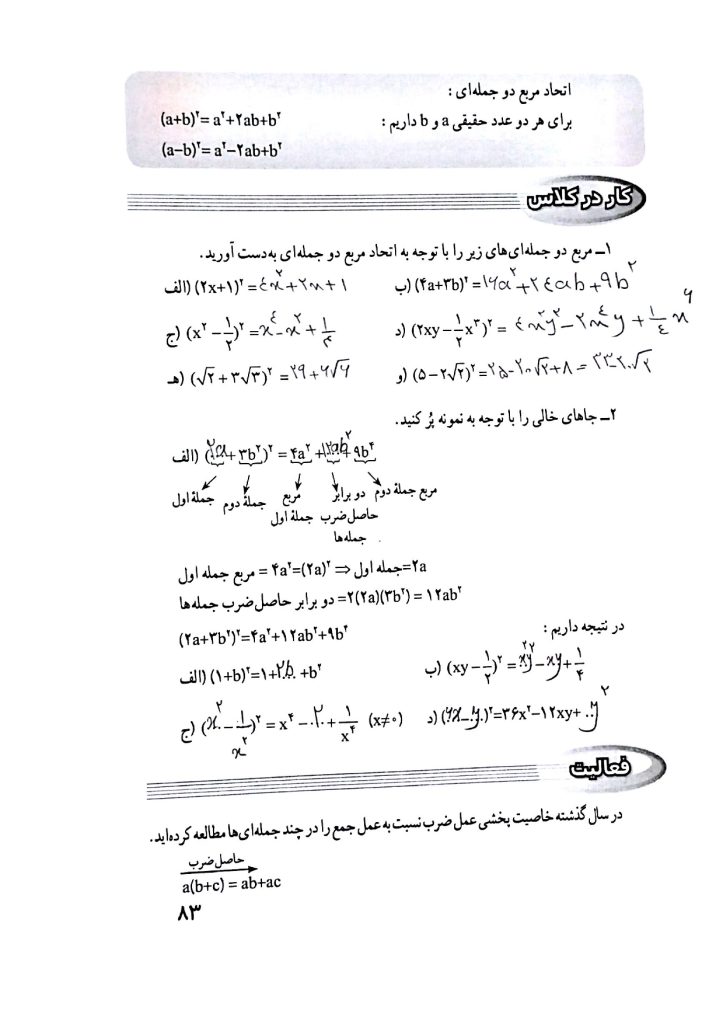 اتحاد مربع دو جمله‌ای :
برای هر دو عدد حقیقی a و b داریم : (a+b)²= a²+۲ab+b²
(a−b)²= a²−۲ab+b²
کار در کلاس
۱ــ مربع دو جمله‌ای‌های زیر را با توجه به اتحاد مربع دو جمله‌ای به‌دست آورید.
الف) (۲x+۱)² =٤x²+۲x+۱ ب) (۴a+۳b)² =۱۶a²+۲٤ab+۹b²
ج) (x² − ۱/۲)² =x٤-x²+۱/۴ د) (۲xy − ۱/۲x³)² = ٤x²y²−۲x٤y+۱/٤x۶
هـ) (√۲ + ۳√۳)² =۲۹+۶√۶ و) (۵ − ۲√۲)² =۲۵-۲۰√۲+۸ = ۳۳-۲۰√۲
۲ــ جاهای خالی را با توجه به نمونه پُر کنید.
الف) (۲a+ ۳b²)² = ۴a² +۱۲ab²+ ۹b⁴
جمله اول جملهٔ دوم مربع جملهٔ اول دو برابر حاصل‌ضرب جمله‌ها مربع جملهٔ دوم
مربع جمله اول = ۴a²=(۲a)² ⇒ جمله اول=۲a
دو برابر حاصل‌ضرب جمله‌ها =۲(۲a)(۳b²) = ۱۲ab²
در نتیجه داریم : (۲a+۳b²)²=۴a²+۱۲ab²+۹b⁴
الف) (۱+b)²=۱+۲b+b² ب) (xy − ۱/۲)² = x²y²−xy+۱/۴
ج) (x² − ۱/x²)² = x⁴ −۲+ ۱/x⁴ (x≠۰) د) (۶x−y)²=۳۶x²−۱۲xy+y²
فعالیت
در سال گذشته خاصیت پخشی عمل ضرب نسبت به عمل جمع را در چند جمله‌ای‌ها مطالعه کرده‌اید.
حاصل ضرب
a(b+c) = ab+ac
۸۳